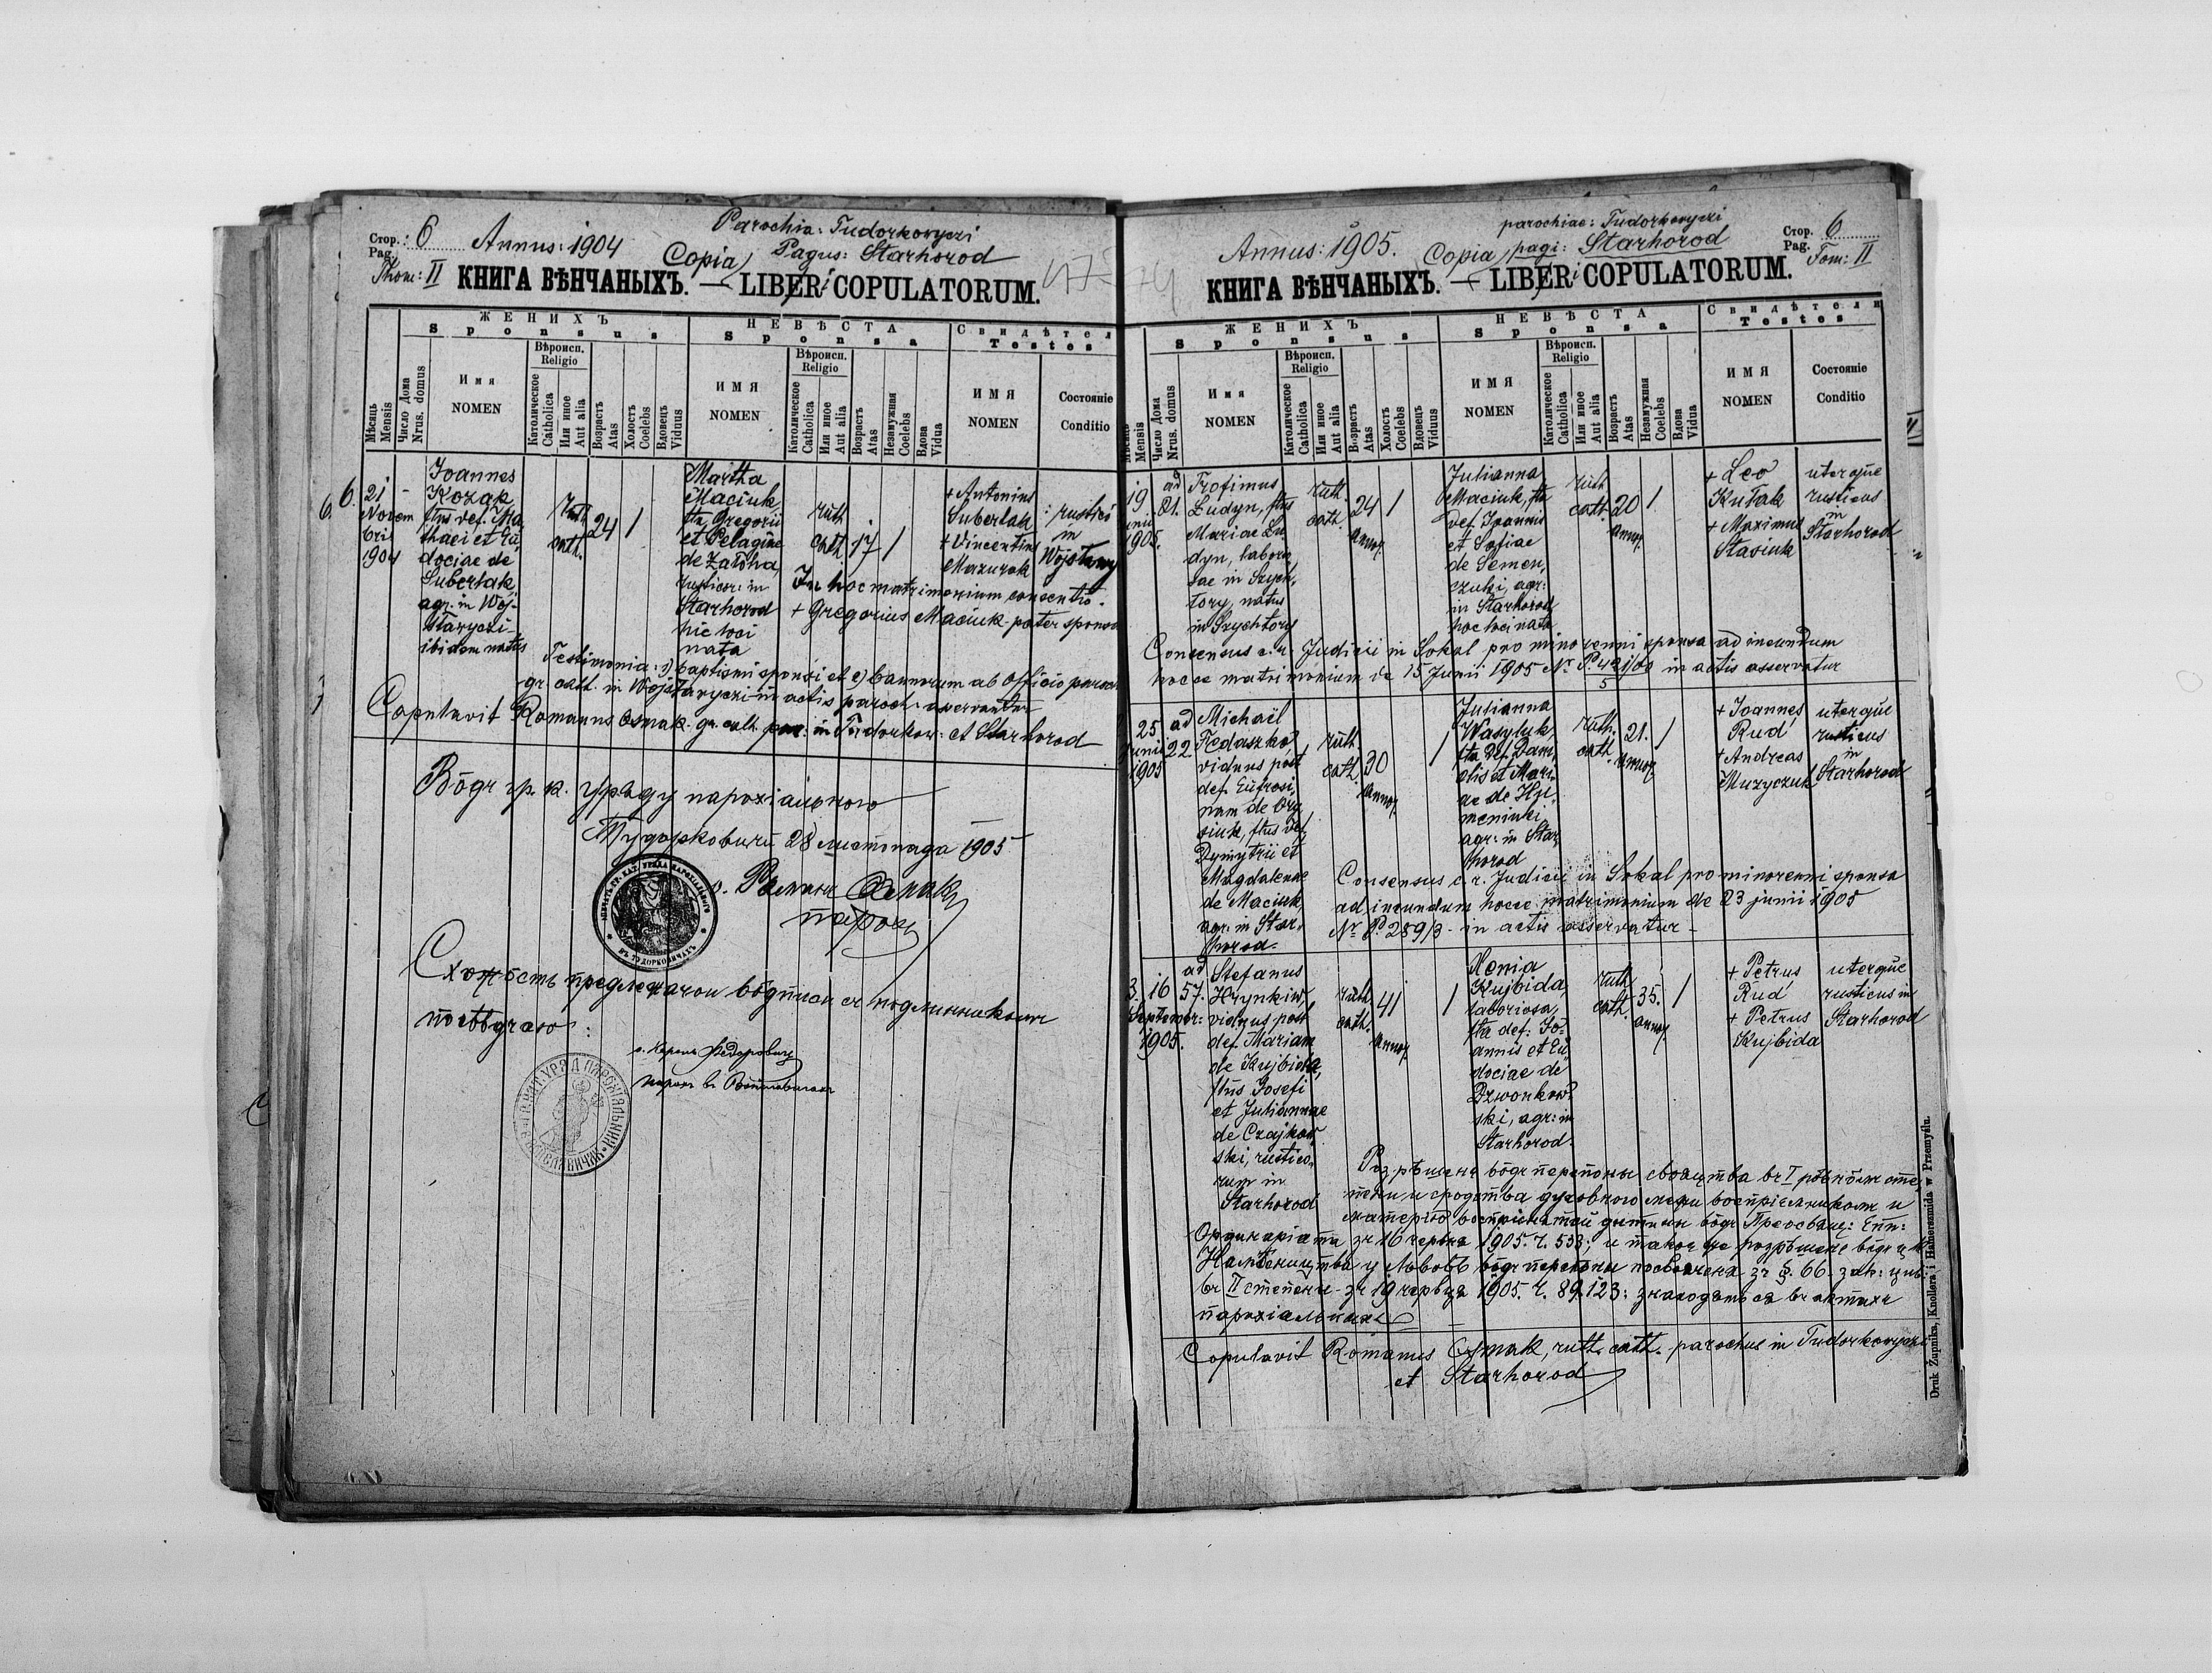 Стор. 6
Pag.
Thom: II
Annus: 1904
Parochia: Tudorkovyczi
Copia Pagus: Starhorod
КНИГА ВѢНЧАНЫХЪ. — LIBER COPULATORUM.
ЖЕНИХЪ
Sponsus
НЕВѢСТА
Sponsa
Свидѣтел
Testes
Мѣсяць
Mensis
Число Дома
Nrus. domus
Имя
NOMEN
Вѣроисп.
Religio
Католическое
Catholica
Или иное
Aut alia
Возрасть
Atas
Холость
Coelebs
Вдовець
Viduus
ИМЯ
NOMEN
Вѣроисп.
Religio
Католическое
Catholica
Или иное
Aut alia
Возрасть
Atas
Незамужная
Coelebs
Вдова
Vidua
ИМЯ
NOMEN
Состояніе
Conditio
6. 6.
21
Novem
bri
1904
-
Joannes
Kozak
ftus def. Ma
thaei et Eu
dociae de
Suberlak,
agr. in Woj-
sławyczi
ibidem natus
ruth
cath.
24
1
Martha
Maciuk,
fta Gregorii
et Pelagiae
de Załoha,
rusticor. in
Starhorod
hic loci
nata
ruth
cath.
17
1
+ Antonius
Suberlak
+ Vincentius
Mazurak
: rustici
in
Wojsławy
In hoc matrimonium consentio.
+ Gregorius Maciuk pater sponsa
Testimonia: 1) baptismi sponsi et 2) bannorum ab officio paroch
gr. cath. in Wojsławyczi in actis paroch. asservantur
Copulavit Romanus Osmak gr. cath. par: in Tudorkow: et Starhorod
Вôдъ гр. к. уряду парохіяльного
Тудорковичѣ 28 листопада 1905
о. Романъ Осмакъ
парох
ВЪ ТУДОРКОВИЧАХЪ
Схожôсть предлежачои вôдписи съ подлинникомъ
потвѣрдаю:
о. Федоровичъ
парох в
Стор. 6
Pag.
Tom: II
Annus: 1905.
parochiae: Tudorkovyczi
Copia pagi: Starhorod
КНИГА ВѢНЧАНЫХЪ. — LIBER COPULATORUM.
ЖЕНИХЪ
Sponsus
НЕВѢСТА
Sponsa
Свидѣтели
Testes
Мѣсяць
Mensis
Число Дома
Nrus. domus
Имя
NOMEN
Вѣроисп.
Religio
Католическое
Catholica
Или иное
Aut alia
Возрасть
Atas
Холость
Coelebs
Вдовець
Viduus
ИМЯ
NOMEN
Вѣроисп.
Religio
Католическое
Catholica
Или иное
Aut alia
Возрасть
Atas
Незамужная
Coelebs
Вдова
Vidua
ИМЯ
NOMEN
Состояніе
Conditio
19
Junii
1905.
ad
81.
Trofimus
Łudyn, ftus
Mariae Łu
dyn, labora
sae in Szych-
tory, natus
in Szychtory
ruth.
cath.
24
annor.
1
Julianna
Maciuk, fta
def. Joannis
et Sofiae
de Semen,
czuki, agr:
in Starhorod
hoc loci nata
ruth
cath.
20
annor.
1
+ Leo
Kułak
+ Maximus
Stasiuk
uterque
rusticus
in
Starhorod
Consensus c. r. Judicii in Sokal pro minorenni sponsa ad ineundum
hocce matrimonium de 15 Junii 1905 Nr in actis asservatur
25
Junii
1905
ad
22
Michaël
Fedaszko,
viduus post
def. Eufrosi,
nam de
ftus def.
Dymytrii et
Magdalenae
de Maciuk,
agr. in Star,
horod.
ruth.
cath.
30
annor.
1
Julianna
Wasyluk,
fta def. Dani
elis et Mari-
ae de
agr. in Star
horod
ruth.
cath.
21.
annor.
1
+ Joannes
Rud
+ Andreas
Muzyczuk
uterque
rusticus
in
Starhorod
Consensus c. r. Judicii in Sokal pro minorenni sponsa
ad ineundum hocce matrimonium de 23 junii 1905
Nr P. 289/3 - in actis asservatur -
3. 16
Septembr:
1905.
ad
57.
Stefanus
Hrynkiw,
viduus post
def. Mariam
de Kujbida,
ftus Josefi
et Juliannae
de Czajkow
ski, rustico,
rum in
Starhorod
ruth
cath.
41
annor.
1
Xenia
Kujbida,
laboriosa,
fta def: Jo-
annis et Eu
dociae de
Dzwonkow
ski, agr: in
Starhorod.
ruth
cath.
35.
annor.
1
+ Petrus
Rud
+ Petrus
Kujbida
uterque
rusticus in
Starhorod
Розрѣшеня вôдъ перепоны своятства въ I рôвнôмъ сте
пени и сродства духовного межи воспріемникомъ и
матерію воспринятои дитины вôдъ Преосвящ: Епп:
Ординаріята зъ 16 червня 1905. ч. 533; и також розрѣшене вôдъ ц. к.
Намѣсництва у Львовѣ вôдъ перепоны посвояченя зъ §. 66. зак: цив:
въ II степени - зъ 19 червця 1905. ч. 89.123: знаходяться въ актахъ
парохіяльныхъ
Copulavit Romanus Osmak, ruth. cath. parochus in Tudorkovyczi
et Starhorod
Druk Żupnika, Knollera i Hamerszmida w Przemyślu.